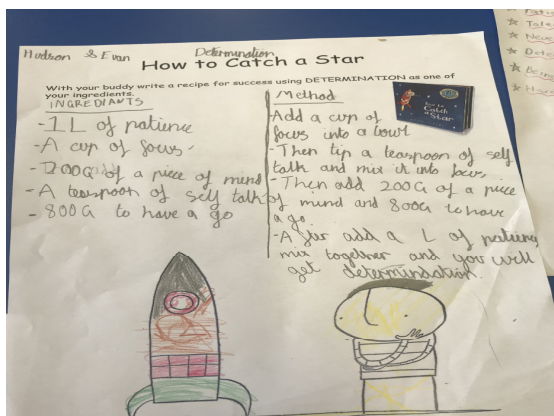 Hudson & Evan
Determination
How to Catch a Star
With your buddy write a recipe for success using DETERMINATION as one of
your ingredients.
INGREDIANTS
-1L of patience
-A cup of focus
-200G of a piece of mind
-A teaspoon of self talk
-800G to have a go
Method
-Add a cup of
focus into a bowl
-Then tip a teaspoon of self
talk and mix it into
-Then add 200G of a piece
of mind and 800G to have
a go.
-After add a L of patience
mix together and you will
get determindation.
How to
Catch
a Star